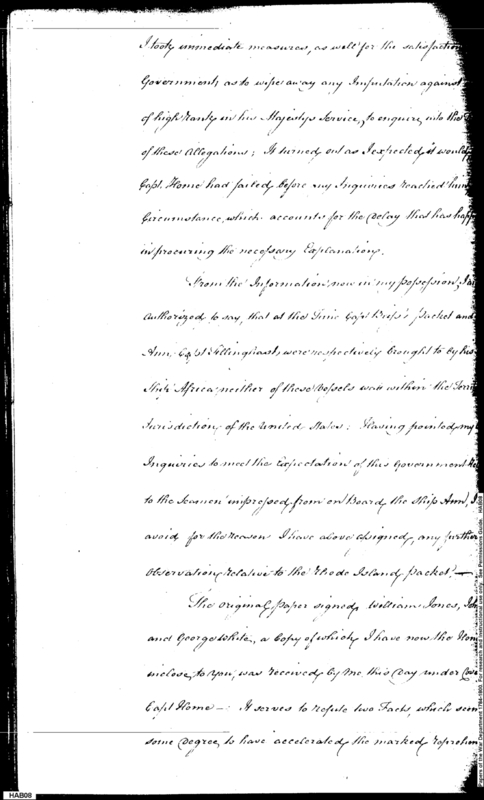 I took immediate measures, as well for the satisfaction
Government, as to wipe away any Imputation against
of high Rank in his Majesty's Service, to enquire into the
of these Allegations; It turned out as I expected it would
Capt. Home had sailed before my Inquiries reached him
Circumstance, which accounts for the Delay that has
in procuring the necessary Explanations.
From the Information now in my possession, I
authorized to say, that at the Time Capt Bliss' Packet and
Ann, Capt Tillinghast, were respectively brought to by his
Ship Africa, neither of these Vessels was within the
Jurisdiction of the United States: Having pointed my
Inquiries to meet the Expectation of this Government
to the Seamen impressed from on Board the Ship Ann, I
avoid for the reason I have above assigned, any further
observation relative to the Rhode Island packet.—
The original Paper signed, William Jones,
and George White, a Copy of which I have now the
inclose to you, was received by me this Day under
Capt Home —. It serves to refute two Facts, which
some Degree, to have accelerated the marked
Papers of the War Department 1784-1800. For research and instructional use only. See Permissions Guide. HAB08
HAB08